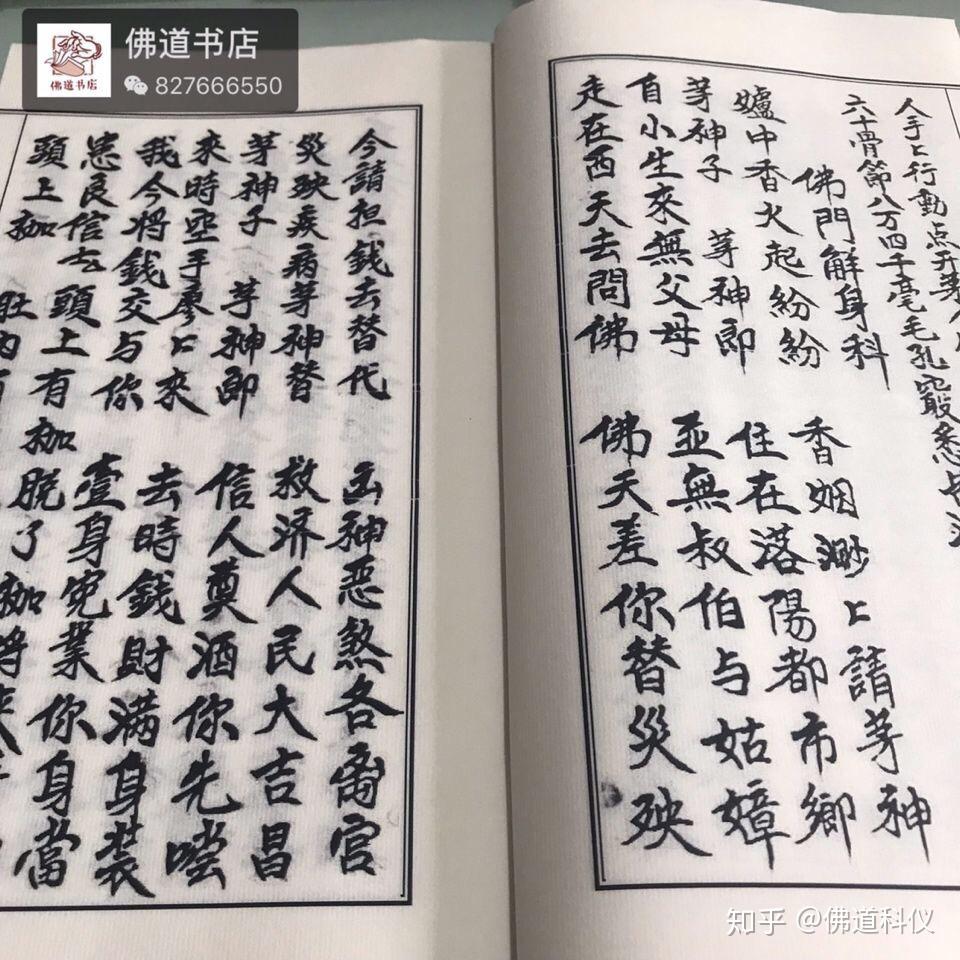 佛道书店
827666550
人手上行動点开
六十骨節八万四千毫毛孔竅悉
佛門解身科
爐中香火起紛紛 香姻渺〻請茅神
茅神子 茅神郎 住在落陽都市鄉
自小生來無父母 並無叔伯与姑嫜
走在西天去問佛 佛天差你替災殃
今請担錢去替代 凶神惡煞各离宫
災殃疾病茅神替 救济人民大吉昌
茅神子 茅神郎 信人奠酒你先嚐
來時空手廖〻來 去時錢財满身装
我今将錢交与你 壹身宛業你身當
患良信去 頭上有枷脱了枷
頭上枷
知乎 @佛道科仪